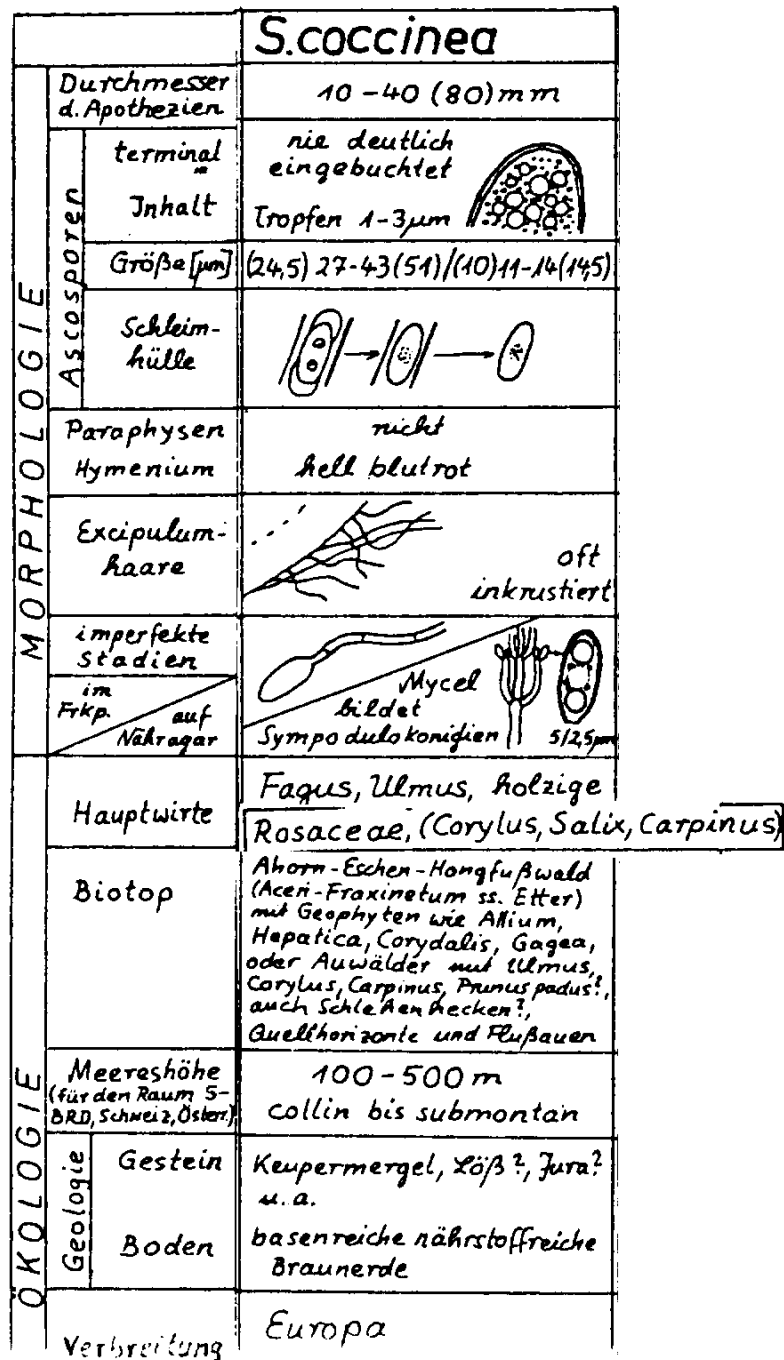 S.coccinea
MORPHOLOGIE
Durchmesser
d. Apothezien
10-40 (80) mm
Ascosporen
terminal
"
Inhalt
nie deutlich
eingebuchtet
Tropfen 1-3µm
Größe [µm]
(24,5) 27-43(51)/(10)11-14(14,5)
Schleim-
hülle
Paraphysen
Hymenium
nicht
hell blutrot
Excipulum-
haare
oft
inkrustiert
imperfekte
Stadien
im
Frkp.
auf
Nähragar
Mycel
bildet
Sympodulokonidien
5/2,5µm
ÖKOLOGIE
Hauptwirte
Fagus, Ulmus, holzige
Rosaceae, (Corylus, Salix, Carpinus)
Biotop
Ahorn-Eschen-Hangfußwald
(Aceri-Fraxinetum ss. Etter)
mit Geophyten wie Allium,
Hepatica, Corydalis, Gagea,
oder Auwälder mit Ulmus,
Corylus, Carpinus, Prunus padus?,
auch Schlehenhecken?,
Quellhorizonte und Flußauen
Meereshöhe
(für den Raum S-
BRD, Schweiz, Österr.)
100-500 m
collin bis submontan
Geologie
Gestein
Keupermergel, Löß?, Jura?
u.a.
Boden
basenreiche nährstoffreiche
Braunerde
Verbreitung
Europa